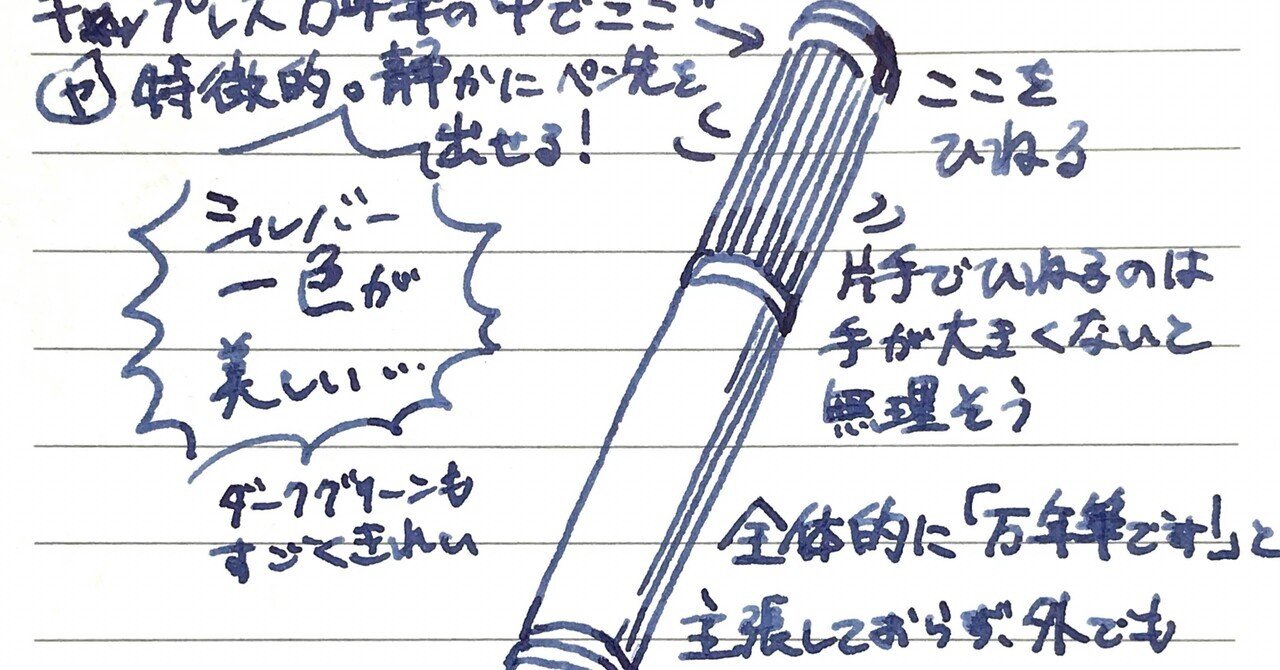 キャップレス万年筆の中でここが
ヤ 特徴的。静かにペン先を
出せる!
ここを
ひねる
シルバー
一色が
美しい…
片手でひねるのは
手が大きくないと
無理そう
ダークグリーンも
すごくきれい
全体的に「万年筆です!」と
主張しておらず、外でも